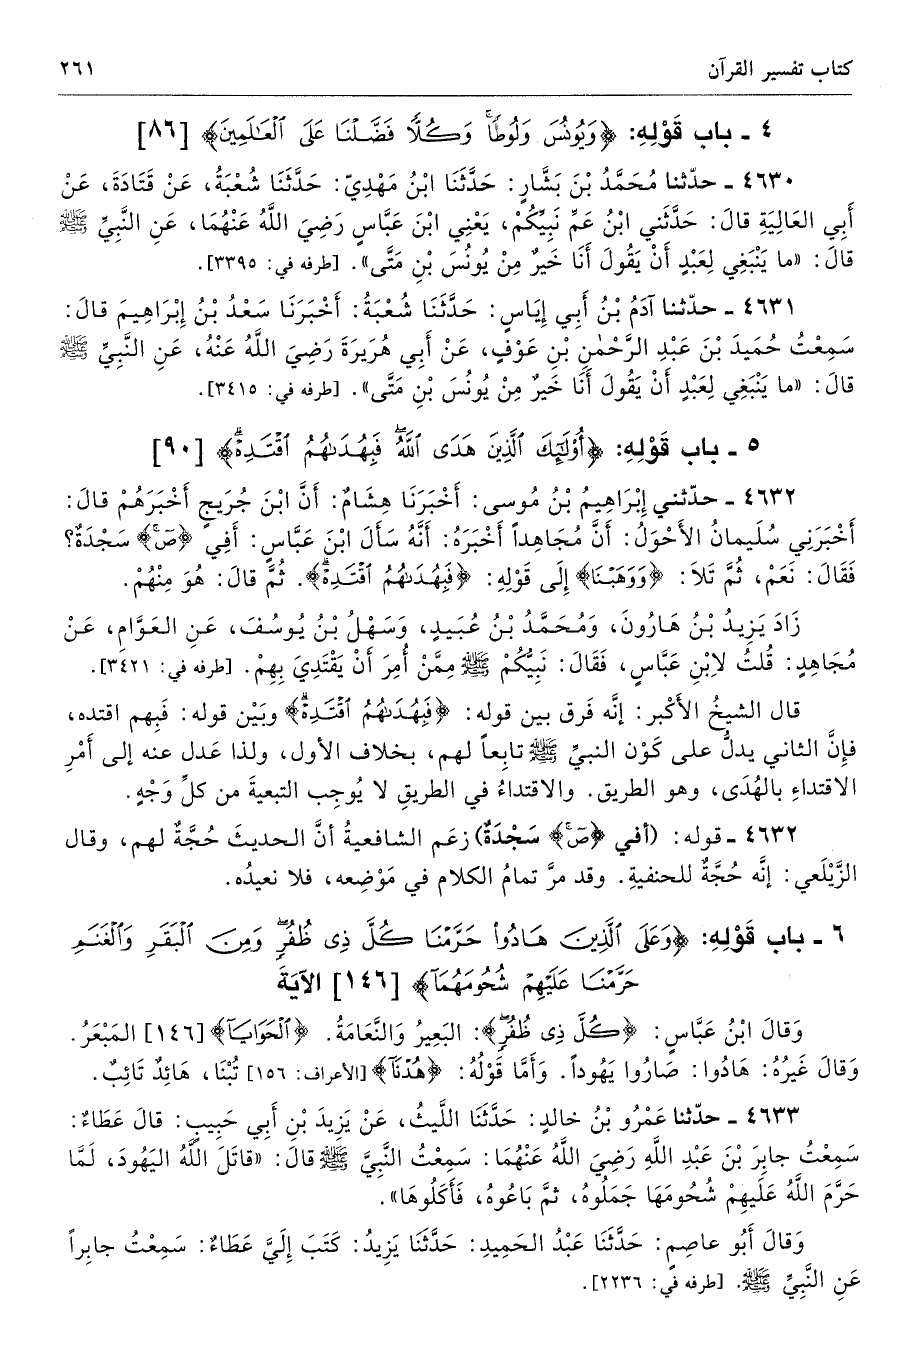 كتاب تفسير القرآن ٢٦١
٤ ـ باب قَوْلِهِ: ﴿وَيُونُسَ وَلُوطًاۚ وَكُلًّا فَضَّلْنَا عَلَى ٱلْعَـٰلَمِينَ﴾ [٨٦]
٤٦٣٠ ـ حدّثنا مُحَمَّدُ بْنُ بَشَّارٍ: حَدَّثَنَا ابْنُ مَهْدِيّ: حَدَّثَنَا شُعْبَةُ، عَنْ قَتَادَةَ، عَنْ
أَبِي العَالِيَةِ قالَ: حَدَّثَنِي ابْنُ عَمِّ نَبِيِّكُمْ، يَعْنِي ابْنَ عَبَّاسٍ رَضِيَ اللَّهُ عَنْهُمَا، عَنِ النَّبِيِّ ﷺ
قالَ: «ما يَنْبَغِي لِعَبْدٍ أَنْ يَقُولَ أَنَا خَيرٌ مِنْ يُونُسَ بْنِ مَتَّى». [طرفه في: ٣٣٩٥].
٤٦٣١ ـ حدّثنا آدَمُ بْنُ أَبِي إِيَاسٍ: حَدَّثَنَا شُعْبَةُ: أَخْبَرَنَا سَعْدُ بْنُ إِبْرَاهِيمَ قالَ:
سَمِعْتُ حُمَيدَ بْنَ عَبْدِ الرَّحْمٰنِ بْنِ عَوْفٍ، عَنْ أَبِي هُرَيرَةَ رَضِيَ اللَّهُ عَنْهُ، عَنِ النَّبِيِّ ﷺ
قالَ: «ما يَنْبَغِي لِعَبْدٍ أَنْ يَقُولَ أَنَا خَيرٌ مِنْ يُونُسَ بْنِ مَتَّى». [طرفه في: ٣٤١٥].
٥ ـ باب قَوْلِهِ: ﴿أُوْلَـٰٓئِكَ ٱلَّذِينَ هَدَى ٱللَّهُۖ فَبِهُدَىٰهُمُ ٱقْتَدِهْۗ﴾ [٩٠]
٤٦٣٢ ـ حدّثني إِبْرَاهِيمُ بْنُ مُوسى: أَخْبَرَنَا هِشَامٌ: أَنَّ ابْنَ جُرَيجٍ أَخْبَرَهُمْ قالَ:
أَخْبَرَنِي سُلَيمانُ الأَحْوَلُ: أَنَّ مُجَاهِداً أَخْبَرَهُ: أَنَّهُ سَأَلَ ابْنَ عَبَّاسٍ: أَفِي ﴿صٓۚ﴾ سَجْدَةٌ؟
فَقَالَ: نَعَمْ، ثُمَّ تَلاَ: ﴿وَوَهَبْنَا﴾ إِلَى قَوْلِهِ: ﴿فَبِهُدَىٰهُمُ ٱقْتَدِهْۗ﴾. ثُمَّ قالَ: هُوَ مِنْهُمْ.
زَادَ يَزِيدُ بْنُ هَارُونَ، وَمُحَمَّدُ بْنُ عُبَيدٍ، وَسَهْلُ بْنُ يُوسُفَ، عَنِ العَوَّامِ، عَنْ
مُجَاهِدٍ: قُلتُ لاِبْنِ عَبَّاسٍ، فَقَالَ: نَبِيُّكُمْ ﷺ مِمَّنْ أُمِرَ أَنْ يَقْتَدِيَ بِهِمْ. [طرفه في: ٣٤٢١].
قال الشيخُ الأكْبر: إنَّه فَرق بين قوله: ﴿فَبِهُدَىٰهُمُ ٱقْتَدِهْۗ﴾ وبَيْن قوله: فَبِهم اقتده،
فإِنَّ الثاني يدلُّ على كَوْن النبيِّ ﷺ تابِعاً لهم، بخلاف الأول، ولذا عَدل عنه إلى أَمْرِ
الاقتداءِ بالهُدَى، وهو الطريق. والاقتداءُ في الطريقِ لا يُوجِب التبعيةَ من كلِّ وَجْهٍ.
٤٦٣٢ ـ قوله: (أفي ﴿صٓۚ﴾ سَجْدَةٌ) زعَم الشافعيةُ أنَّ الحديثَ حُجَّةٌ لهم، وقال
الزَّيْلَعي: إنَّه حُجَّةٌ للحنفيةِ. وقد مرَّ تمامُ الكلام في مَوْضِعه، فلا نعيدُه.
٦ ـ باب قَوْلِهِ: ﴿وَعَلَى ٱلَّذِينَ هَادُواْ حَرَّمْنَا كُلَّ ذِى ظُفُرٍۖ وَمِنَ ٱلْبَقَرِ وَٱلْغَنَمِ
حَرَّمْنَا عَلَيْهِمْ شُحُومَهُمَآ﴾ [١٤٦] الآيَةَ
وَقَالَ ابْنُ عَبَّاسٍ: ﴿كُلَّ ذِى ظُفُرٍۖ﴾: البَعِيرُ وَالنَّعَامَةُ. ﴿ٱلْحَوَايَآ﴾ [١٤٦] المَبْعَرُ.
وَقالَ غَيرُهُ: هَادُوا: صَارُوا يَهُوداً. وَأَمَّا قَوْلُهُ: ﴿هُدْنَآ﴾ [الأعراف: ١٥٦] تُبْنَا، هَائِدٌ تَائِبٌ.
٤٦٣٣ ـ حدّثنا عَمْرُو بْنُ خالِدٍ: حَدَّثَنَا اللَّيثُ، عَنْ يَزِيدَ بْنِ أَبِي حَبِيبٍ: قالَ عَطَاءٌ:
سَمِعْتُ جابِرَ بْنَ عَبْدِ اللَّهِ رَضِيَ اللَّهُ عَنْهُمَا: سَمِعْتُ النَّبِيَّ ﷺ قالَ: «قاتَلَ اللَّهُ اليَهُودَ، لَمَّا
حَرَّمَ اللَّهُ عَلَيهِمْ شُحُومَهَا جَمَلُوهُ، ثمَّ بَاعُوهُ، فَأَكَلُوهَا».
وَقالَ أَبُو عاصِمٍ: حَدَّثَنَا عَبْدُ الحَمِيدِ: حَدَّثَنَا يَزِيدُ: كَتَبَ إِلَيَّ عَطَاءٌ: سَمِعْتُ جابِراً
عَنِ النَّبِيِّ ﷺ. [طرفه في: ٢٢٣٦].